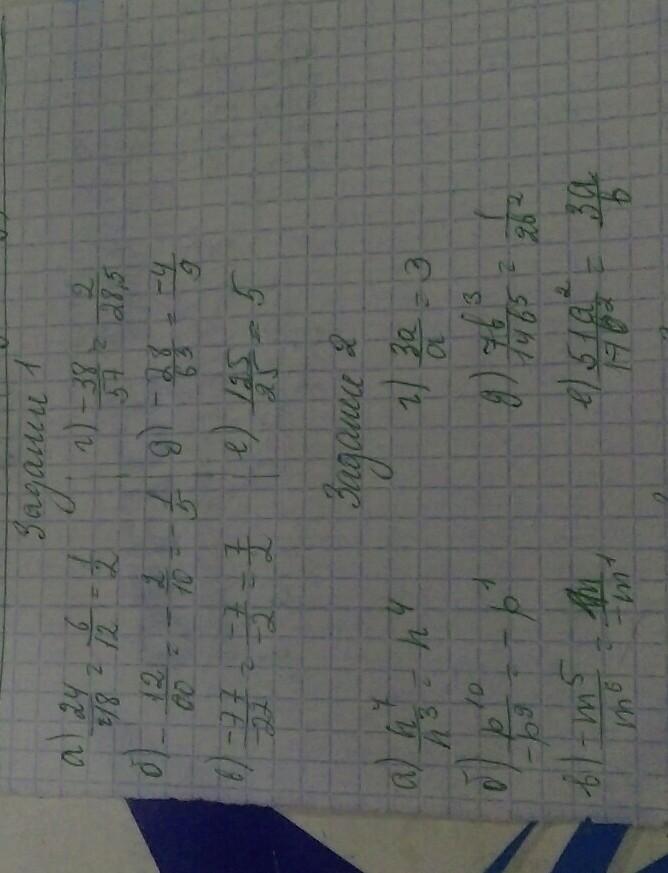 Задание 1
а) 24/48 = 6/12 = 1/2 г) -38/57 = 2/28,5
б) -12/60 = -2/10 = -1/5 д) -28/63 = -4/9
в) -77/-22 = -7/-2 = 7/2 е) 125/25 = 5
Задание 2
а) n^7/n^3 = n^4 г) 3a/a = 3
б) p^10/-p^9 = -p^1 д) 7b^3/14b^5 = 1/2b^2
в) -m^5/m^6 = /-m^1 е) 51a^2/17b^2 = 3a/b